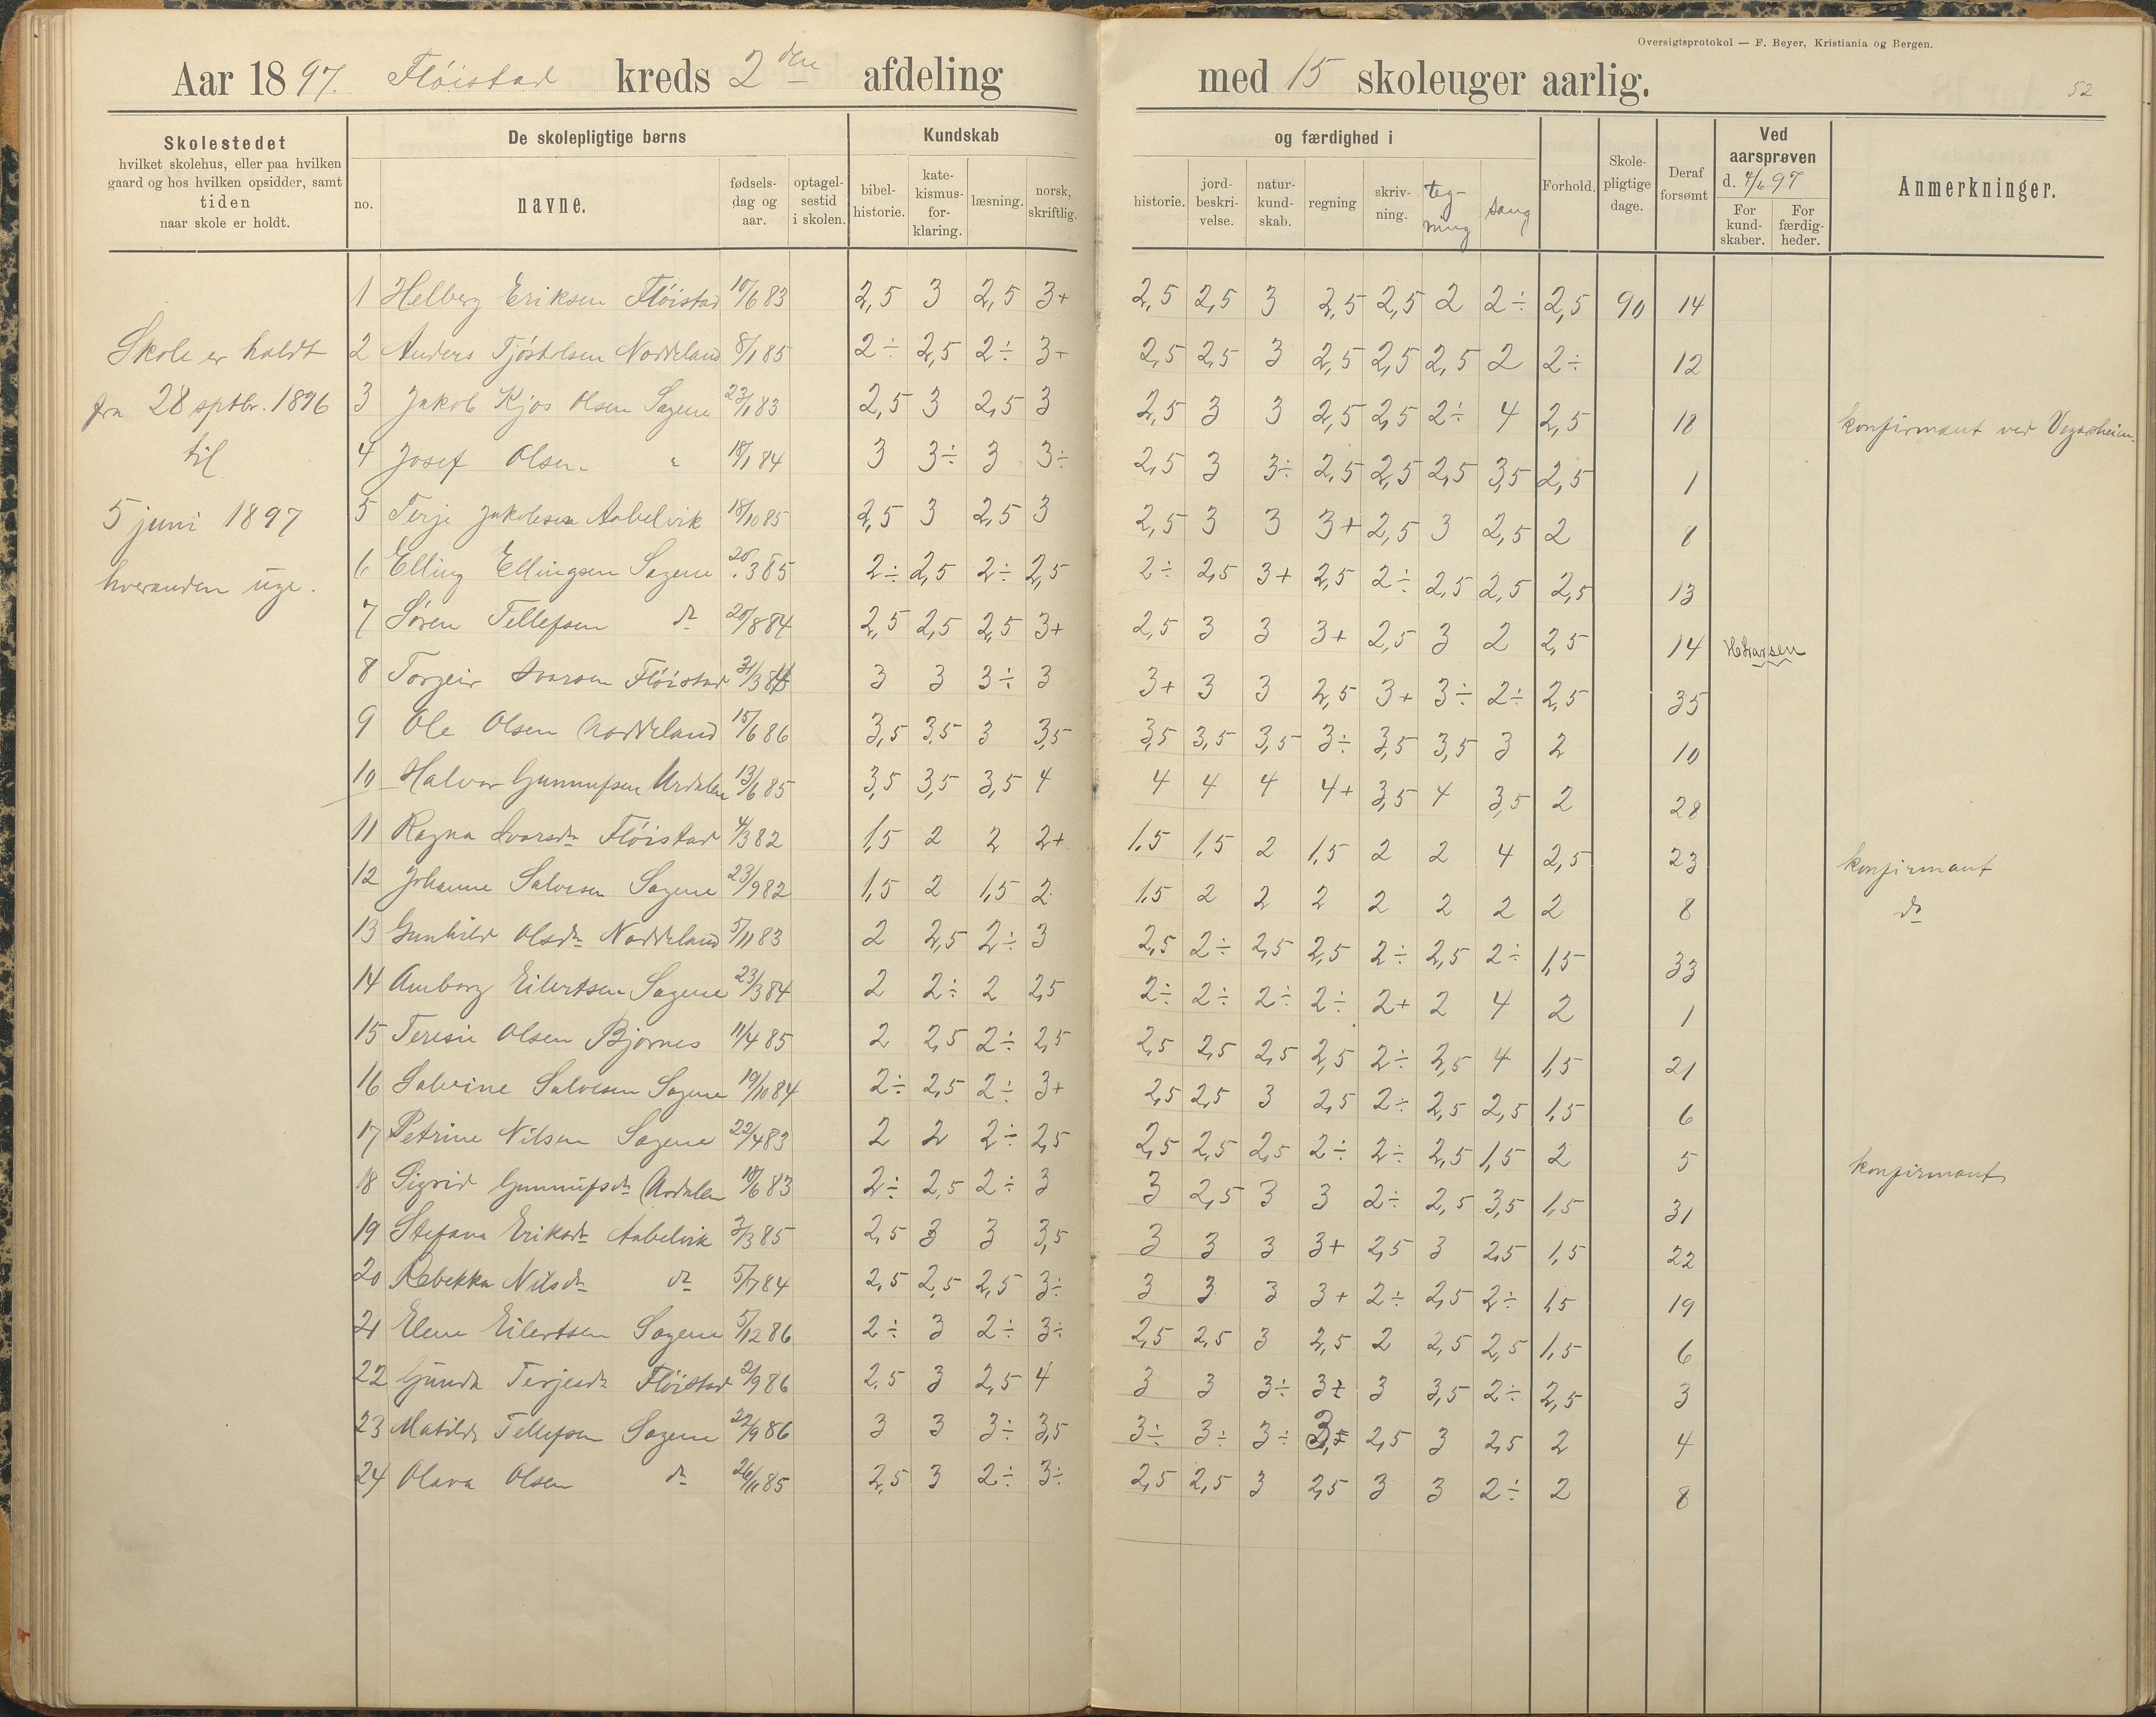 Oversigtsprotokol — F. Beyer, Kristiania og Bergen.
Aar 1897. Flöistad kreds 2den afdeling med 15 skoleuger aarlig.
52
Skolestedet
hvilket skolehus, eller paa hvilken
gaard og hos hvilken opsidder, samt
tiden
naar skole er holdt.
De skolepligtige børns
no.
navne.
fødsels-
dag og
aar.
optagel-
sestid
i skolen.
Kundskab
bibel-
historie.
kate-
kismus-
for-
klaring.
læsning.
norsk,
skriftlig.
og færdighed i
historie.
jord-
beskri-
velse.
natur-
kund-
skab.
regning
skriv-
ning.
teg-
ning
sang
Forhold.
Skole-
pligtige
dage.
Deraf
forsømt
Ved
aarsprøven
d. 4/6 97
For
kund-
skaber.
For
færdig-
heder.
Anmerkninger.
Skole er holdt
fra 28 sptbr. 1896
til
5 juni 1897
hveranden uge.
1 Helberg Eriksen Flöistad 17/6 83 2,5 3 2,5 3+ 2,5 2,5 3 2,5 2,5 2 2÷ 2,5 90 14
2 Anders Tjöstolsen Norddeland 8/1 85 2÷ 2,5 2÷ 3+ 2,5 2,5 3 2,5 2,5 2,5 2 2÷ 12
3 Jakob Kjos Olsen Sagene 23/1 83 2,5 3 2,5 3 2,5 3 3 2,5 2,5 2÷ 4 2,5 18 konfirmant ved Vegarsheien
4 Josef Olsen " 18/1 84 3 3÷ 3 3÷ 2,5 3 3÷ 2,5 2,5 2,5 3,5 2,5 1
5 Terje Jakobsen Aabelvik 18/10 85 2,5 3 2,5 3 2,5 3 3 3+ 2,5 3 2,5 2 8
6 Elling Ellingsen Sagene 20/3 85 2÷ 2,5 2÷ 2,5 2÷ 2,5 3+ 2,5 2÷ 2,5 2,5 2,5 13
7 Sören Tellefsen do 20/8 84 2,5 2,5 2,5 3+ 2,5 3 3 3+ 2,5 3 2 2,5 14 H Larsen
8 Torgeir Ivarsen Flöistad 31/3 3 3 3÷ 3 3+ 3 3 2,5 3+ 3÷ 2÷ 2,5 35
9 Ole Olsen Norddeland 15/6 86 3,5 3,5 3 3,5 3,5 3,5 3,5 3÷ 3,5 3,5 3 2 10
10 Halvor Gunnufsen Urdalen 13/6 85 3,5 3,5 3,5 4 4 4 4 4+ 3,5 4 3,5 2 28
11 Ragna Ivarsdr Flöistad 4/3 82 1,5 2 2 2+ 1,5 1,5 2 1,5 2 2 4 2,5 23 konfirmant
12 Johanne Salvesen Sagene 23/9 82 1,5 2 1,5 2 1,5 2 2 2 2 2 2 2 8 do
13 Gunhild Olsdr Norddeland 5/11 83 2 2,5 2÷ 3 2,5 2÷ 2,5 2,5 2÷ 2,5 2÷ 1,5 33
14 Amborg Eilertsen Sagene 23/3 84 2 2÷ 2 2,5 2÷ 2÷ 2÷ 2÷ 2+ 2 4 2 1
15 Teresie Olsen Bjornes 11/4 85 2 2,5 2÷ 2,5 2,5 2,5 2,5 2,5 2÷ 2,5 4 1,5 21
16 Salvine Salvesen Sagene 19/10 84 2÷ 2,5 2÷ 3+ 2,5 2,5 3 2,5 2÷ 2,5 2,5 1,5 6
17 Petrine Nilsen Sagene 22/4 83 2 2 2÷ 2,5 2,5 2,5 2,5 2÷ 2÷ 2,5 1,5 2 5
18 Sigrid Gunnufsdr Urdalen 18/6 83 2÷ 2,5 2÷ 3 3 2,5 3 3 2÷ 2,5 3,5 1,5 31 konfirmant
19 Stefana Eriksdr Aabelvik 3/3 85 2,5 3 3 3,5 3 3 3 3+ 2,5 3 2,5 1,5 22
20 Rebekka Nilsdr do 5/7 84 2,5 2,5 2,5 3÷ 3 3 3 3+ 2÷ 2,5 2÷ 1,5 19
21 Elene Eilertsen Sagene 5/12 86 2÷ 3 2÷ 3÷ 2,5 2,5 3 2,5 2 2,5 2,5 1,5 6
22 Gunda Terjesdr Flöistad 2/9 86 2,5 3 2,5 4 3 3 3÷ 3 3 3,5 2÷ 2,5 3
23 Matilde Tellefsen Sagene 22/9 86 3 3 3÷ 3,5 3÷ 3÷ 3÷ 2,5 3 2,5 2 4
24 Olava Olsen do 26/11 85 2,5 3 2÷ 3÷ 2,5 2,5 3 2,5 3 3 2÷ 2 8